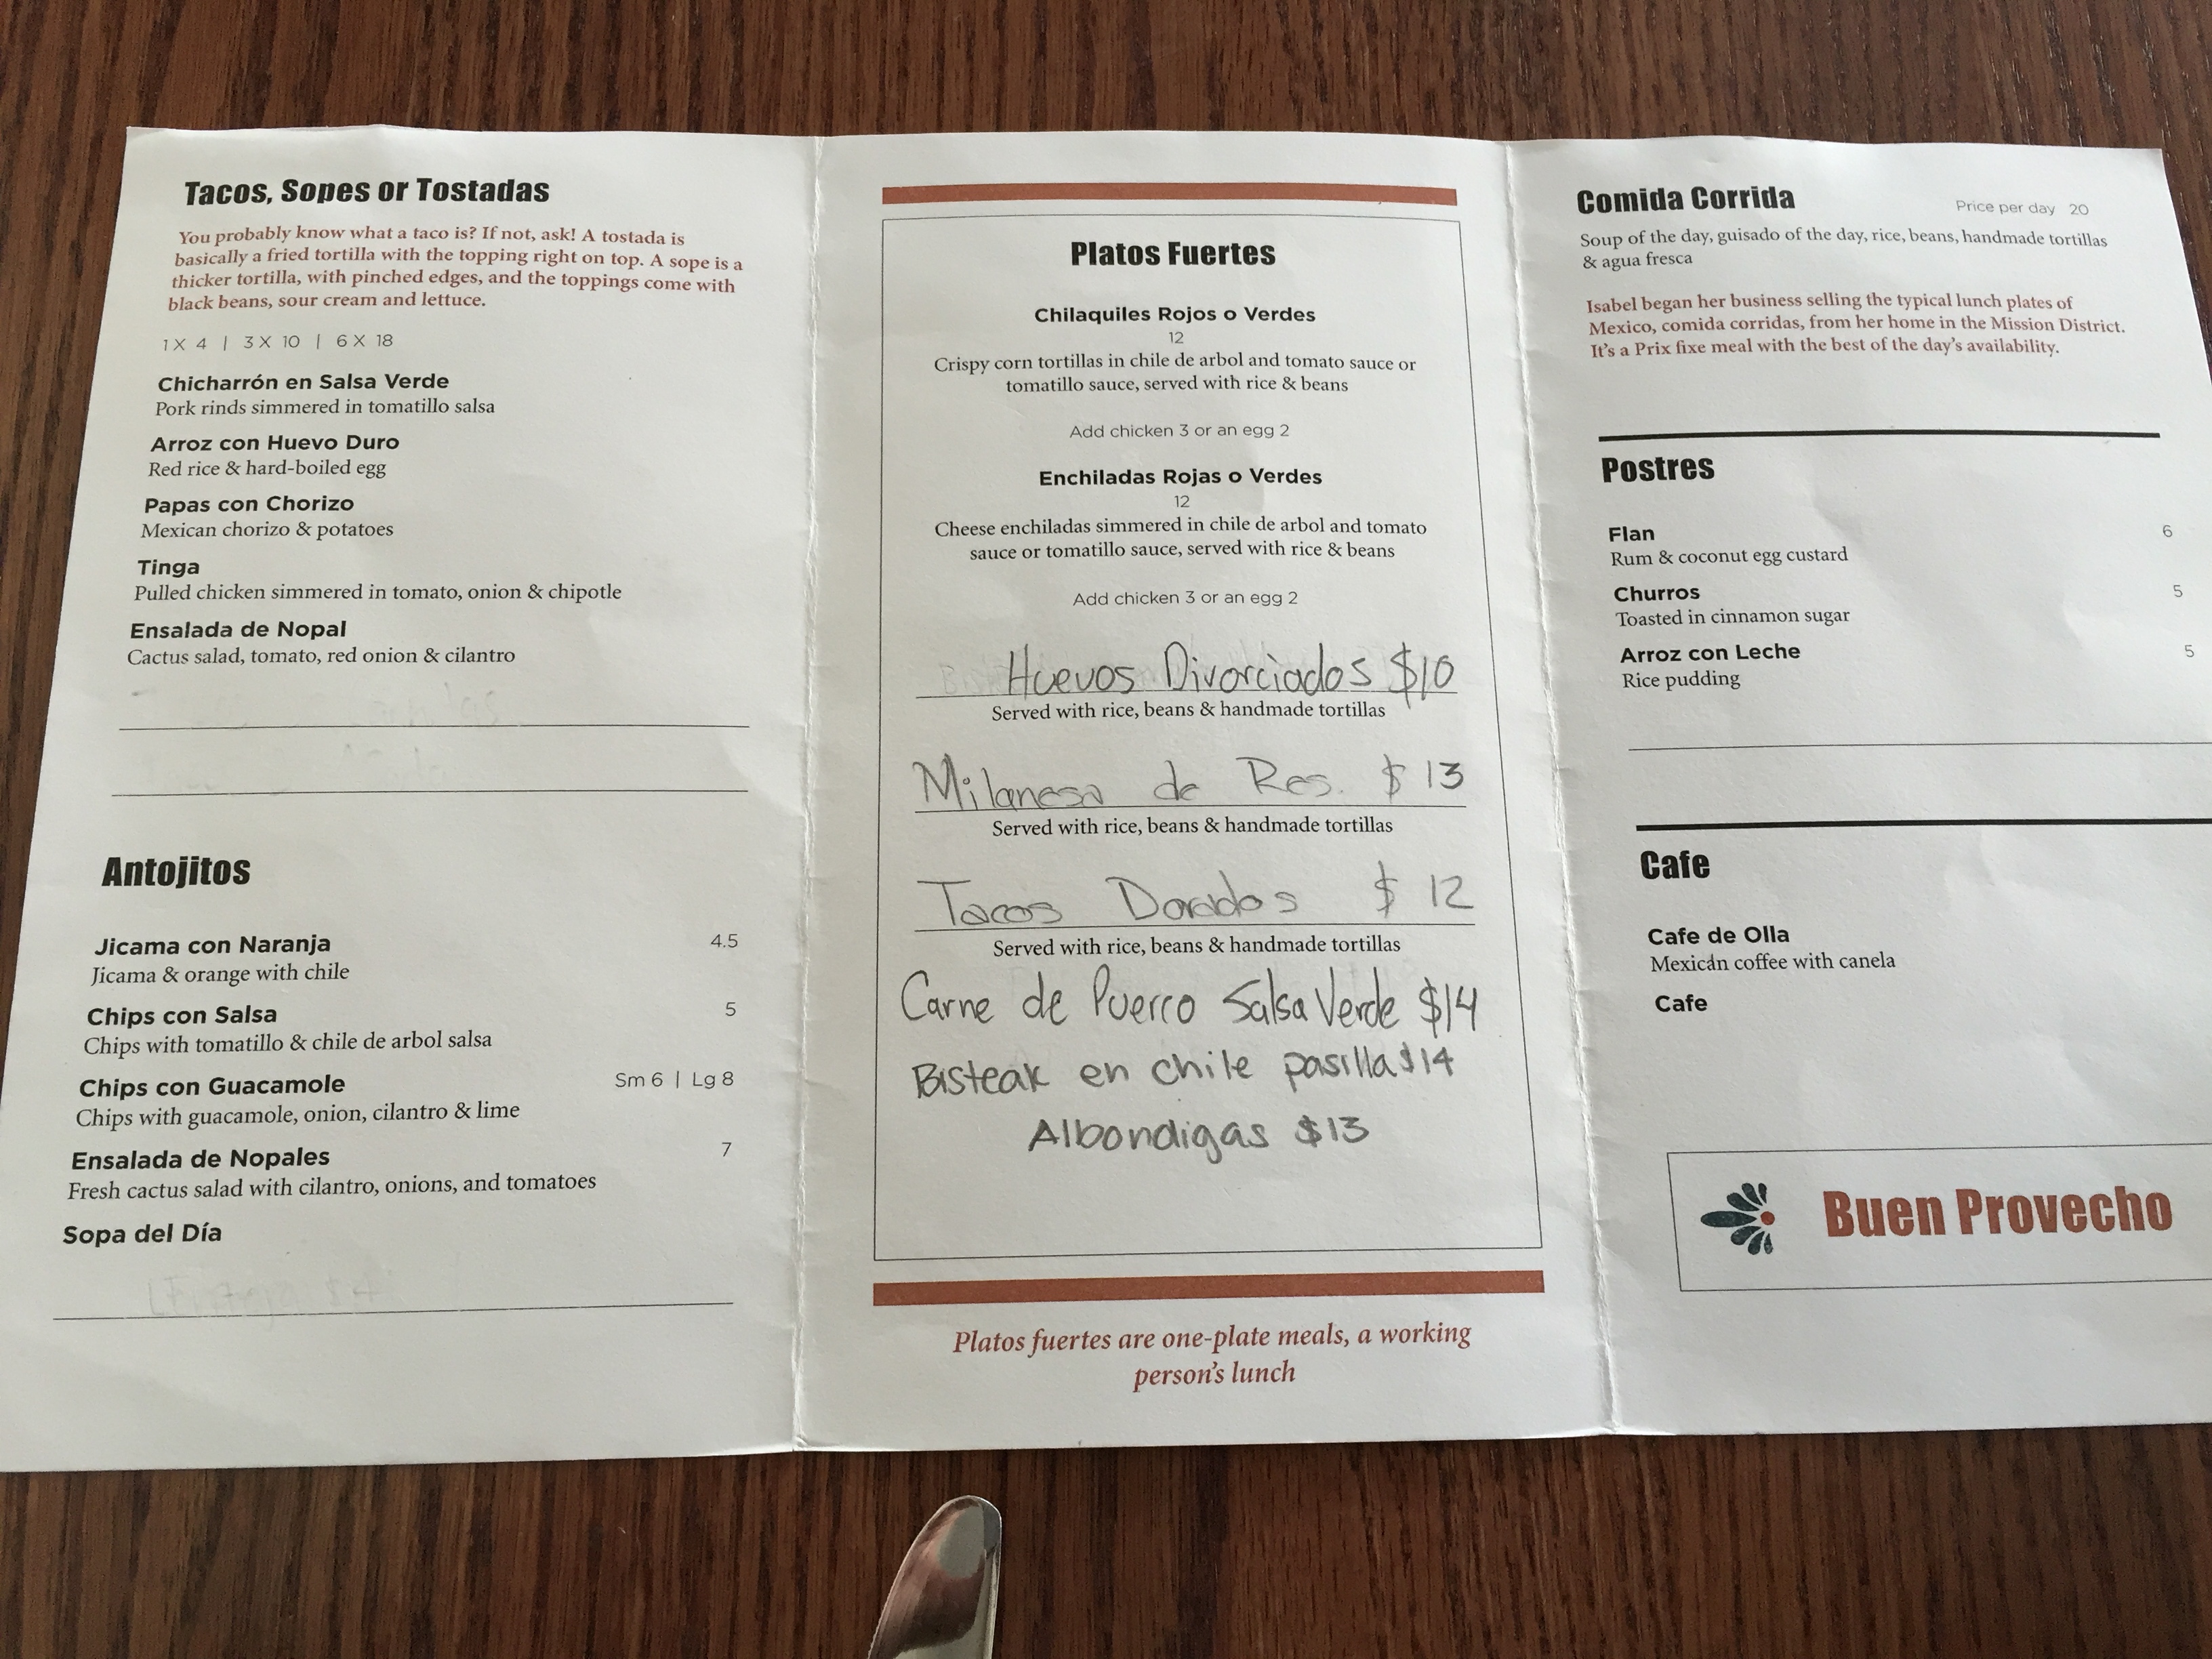 Tacos, Sopes or Tostadas
You probably know what a taco is? If not, ask! A tostada is
basically a fried tortilla with the topping right on top. A sope is a
thicker tortilla, with pinched edges, and the toppings come with
black beans, sour cream and lettuce.
1 X 4 | 3 X 10 | 6 X 18
Chicharrón en Salsa Verde
Pork rinds simmered in tomatillo salsa
Arroz con Huevo Duro
Red rice & hard-boiled egg
Papas con Chorizo
Mexican chorizo & potatoes
Tinga
Pulled chicken simmered in tomato, onion & chipotle
Ensalada de Nopal
Cactus salad, tomato, red onion & cilantro
Antojitos
Jicama con Naranja 4.5
Jicama & orange with chile
Chips con Salsa 5
Chips with tomatillo & chile de arbol salsa
Chips con Guacamole Sm 6 | Lg 8
Chips with guacamole, onion, cilantro & lime
Ensalada de Nopales 7
Fresh cactus salad with cilantro, onions, and tomatoes
Sopa del Día
Platos Fuertes
Chilaquiles Rojos o Verdes
12
Crispy corn tortillas in chile de arbol and tomato sauce or
tomatillo sauce, served with rice & beans
Add chicken 3 or an egg 2
Enchiladas Rojas o Verdes
12
Cheese enchiladas simmered in chile de arbol and tomato
sauce or tomatillo sauce, served with rice & beans
Add chicken 3 or an egg 2
Huevos Divorciados $10
Served with rice, beans & handmade tortillas
Milanesa de Res. $13
Served with rice, beans & handmade tortillas
Tacos Dorados $12
Served with rice, beans & handmade tortillas
Carne de Puerco Salsa Verde $14
Bisteak en chile pasilla $14
Albondigas $13
Platos fuertes are one-plate meals, a working
person's lunch
Comida Corrida Price per day 20
Soup of the day, guisado of the day, rice, beans, handmade tortillas
& agua fresca
Isabel began her business selling the typical lunch plates of
Mexico, comida corridas, from her home in the Mission District.
It's a Prix fixe meal with the best of the day's availability.
Postres
Flan 6
Rum & coconut egg custard
Churros 5
Toasted in cinnamon sugar
Arroz con Leche 5
Rice pudding
Cafe
Cafe de Olla
Mexican coffee with canela
Cafe
Buen Provecho